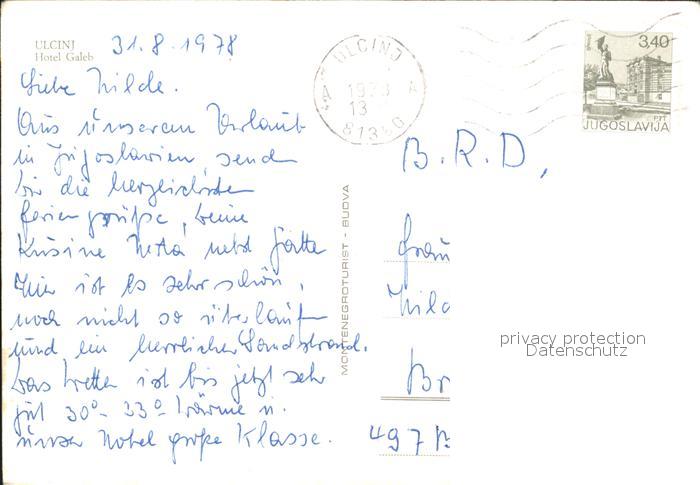 ULCINJ
Hotel Galeb
31.8.1978
Liebe Hilde.
Aus unserem Urlaub
in Jugoslawien, send
dir die herzlichsten
Feriengrüße, Deine
Kusine Meta nebst Gatte
Hier ist es sehr schön,
noch nicht so überlaufen
und ein herrlicher Sandstrand.
Das Wetter ist bis jetzt sehr
gut 30°-33° Wärme u.
unser Hotel große Klasse.
MONTENEGROTURIST - BUDVA
ULCINJ
13
81360
3,40
PTT
JUGOSLAVIJA
B.R.D,
Frau
Hild
Br
497
privacy protection
Datenschutz